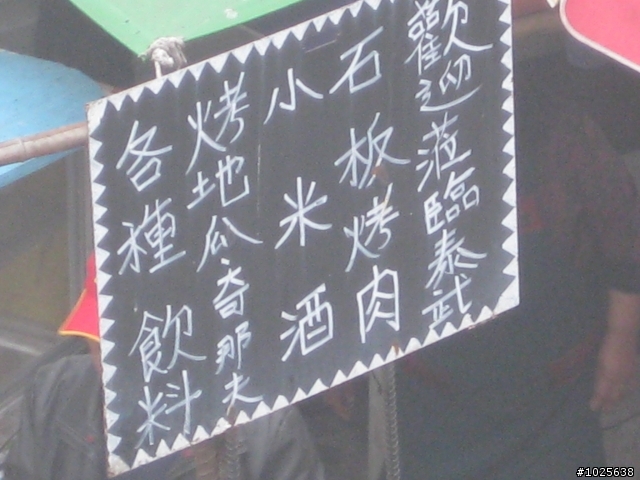 歡迎蒞臨泰武
石板烤肉
小米酒
烤地瓜、奇那夫
各種飲料
#1025638